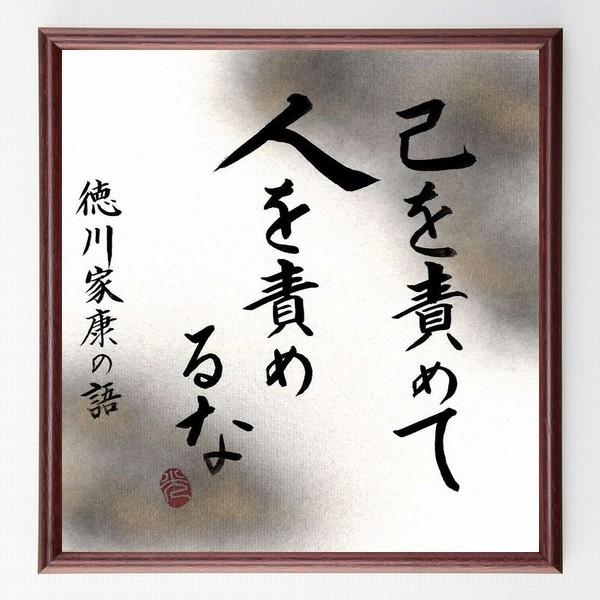 己を責めて
人を責め
るな
徳川家康の語